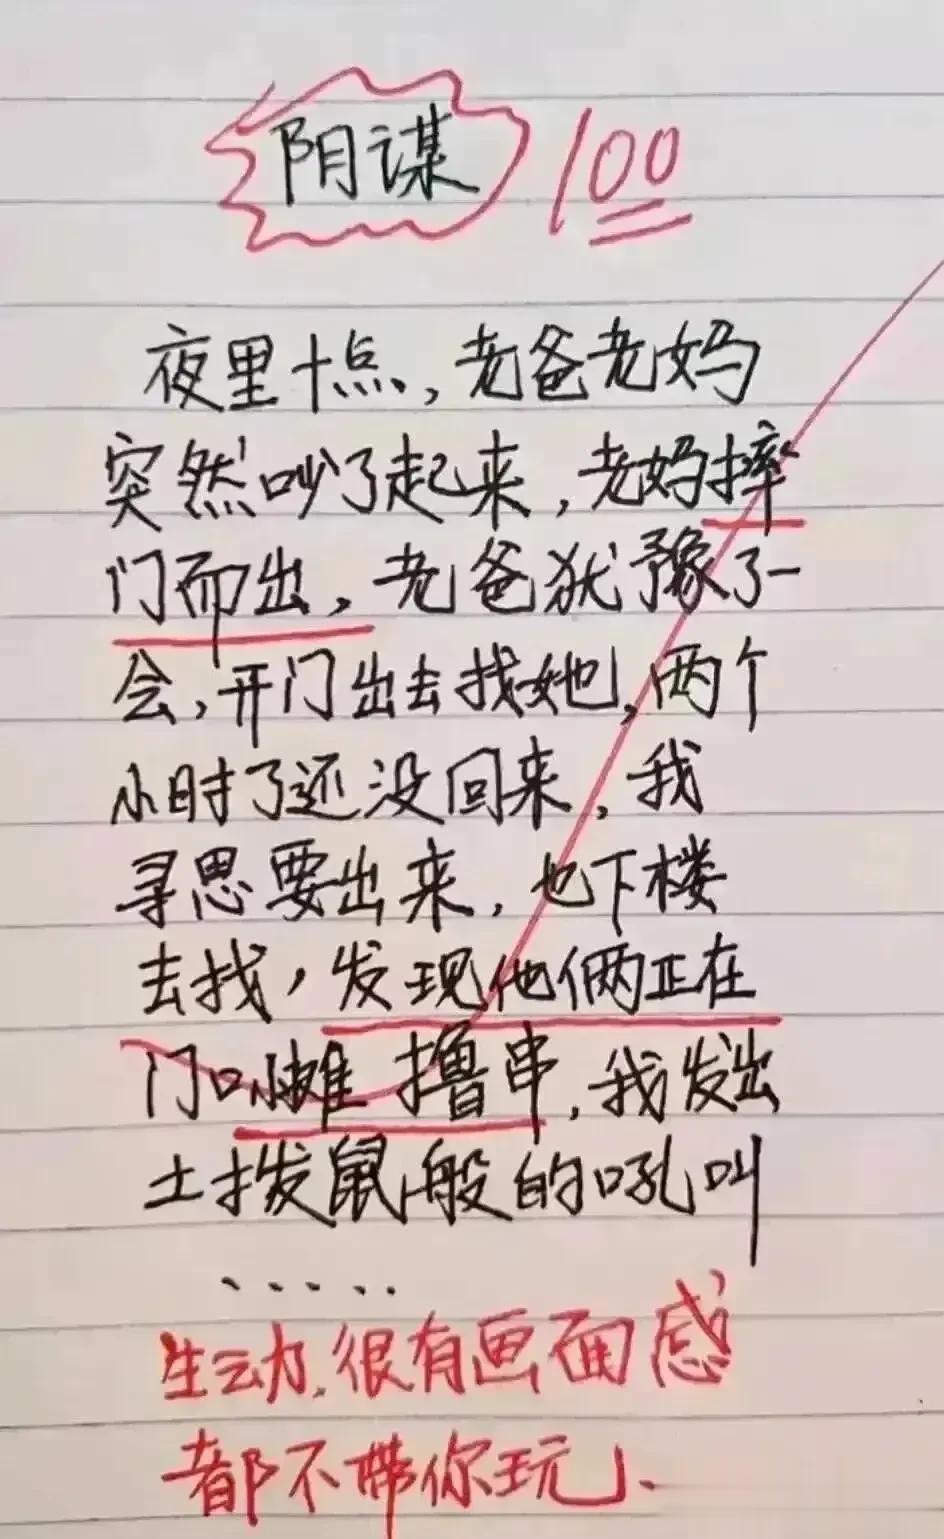 阴谋 100
夜里十点，老爸老妈
突然吵了起来，老妈摔
门而出，老爸犹豫了一
会，开门出去找她，两个
小时了还没回来，我
寻思要出来，也下楼
去找，发现他俩正在
门口小摊撸串，我发出
土拨鼠般的吼叫
......
生动，很有画面感
都不带你玩、